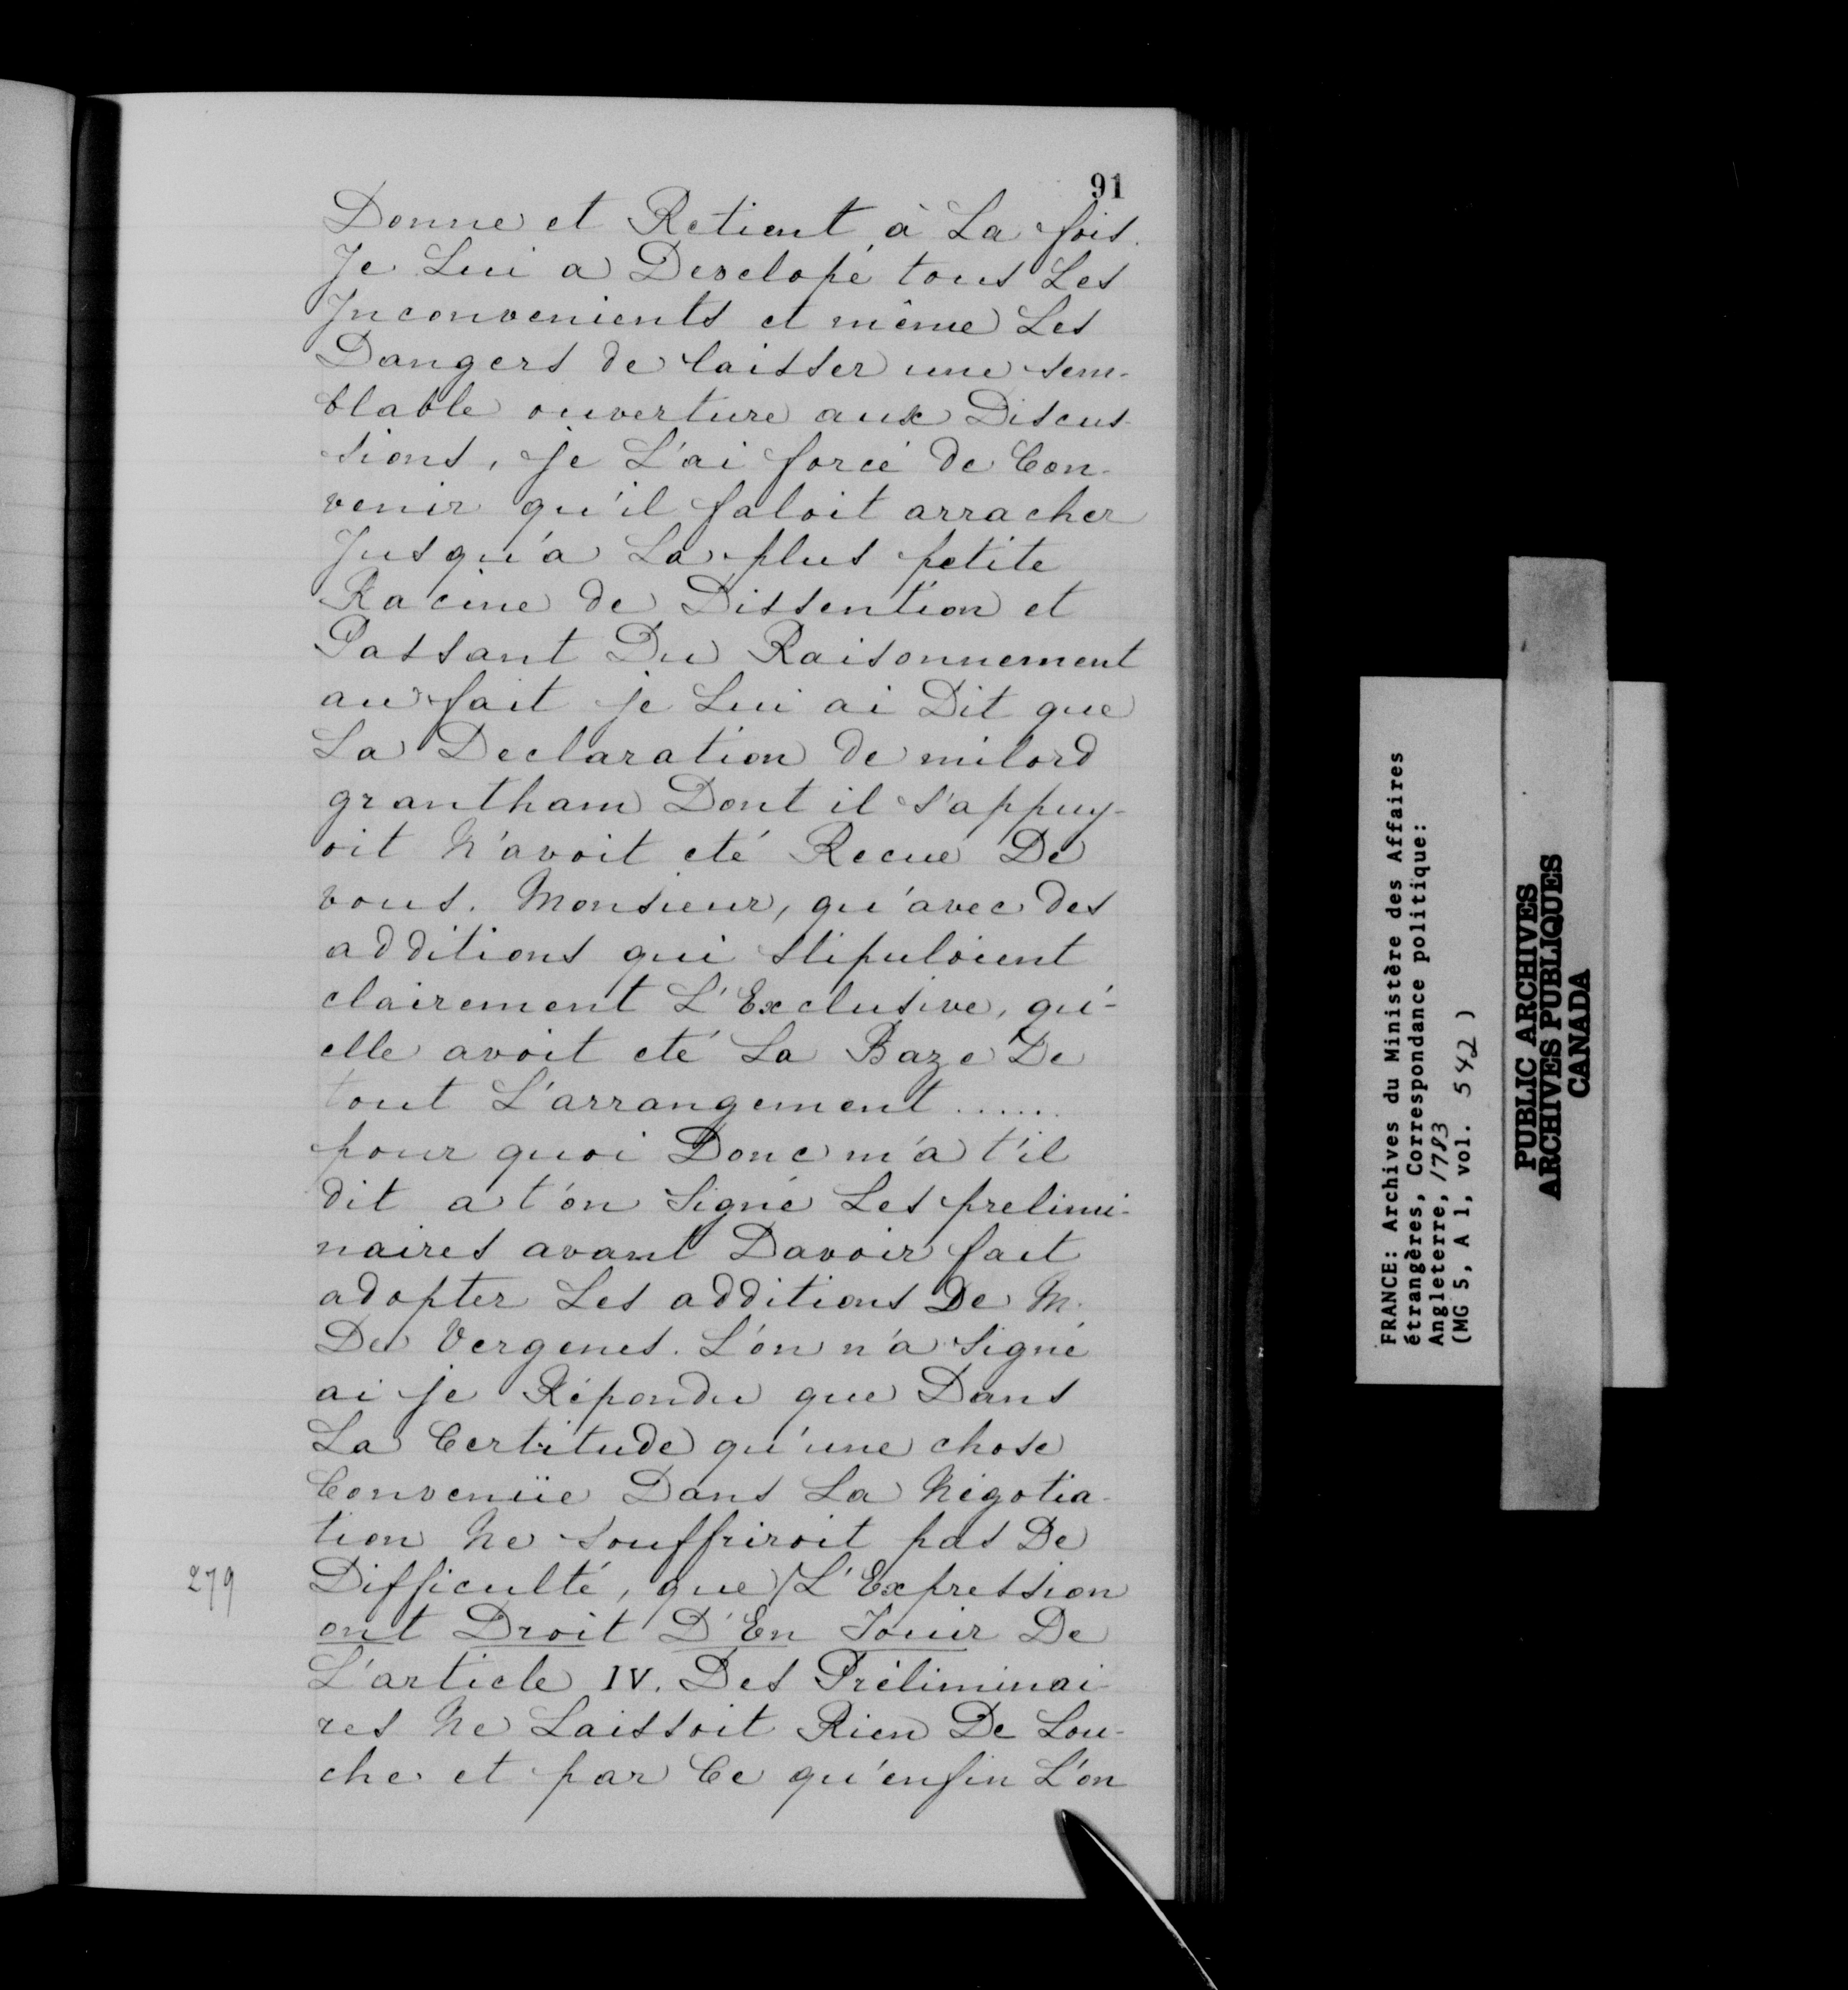 91
Donne et Retient à La fois.
Je Lui a Developé tous Les
Inconvenients et même Les
Dangers de laisser une sem-
blable ouverture aux Discus-
sions, je L'ai forcé de Con-
venir qu'il faloit arracher
Jusqu'a La plus petite
Racine de Dissention et
Passant Du Raisonnement
au fait je Lui ai Dit que
La Declaration de milord
grantham Dont il s'appuy-
oit N'avoit eté Recue De
vous. Monsieur, qu'avec des
additions qui stipuloient
clairement L'Exclusive, qu'-
elle avoit eté La Baze De
tout L'arrangement......
pour quoi Donc m'a t'il
dit a t'on Signé Les prelimi-
naires avant Davoir fait
adopter Les additions De M.
De Vergenes. L'on n'a signé
ai je Répondu que Dans
La Certitude qu'une chose
Convenüe Dans La Négotia-
tion Ne souffriroit pas De
279
Difficulté, que / L'Expression
ont Droit D'En Jouir De
L'article IV. Des Préliminai-
res Ne Laissoit Rien De Lou-
che et par Ce qu'enfin L'on
FRANCE: Archives du Ministère des Affaires
étrangères, Correspondance politique:
Angleterre, 1783
(MG 5, A 1, vol. 542 )
PUBLIC ARCHIVES
ARCHIVES PUBLIQUES
CANADA